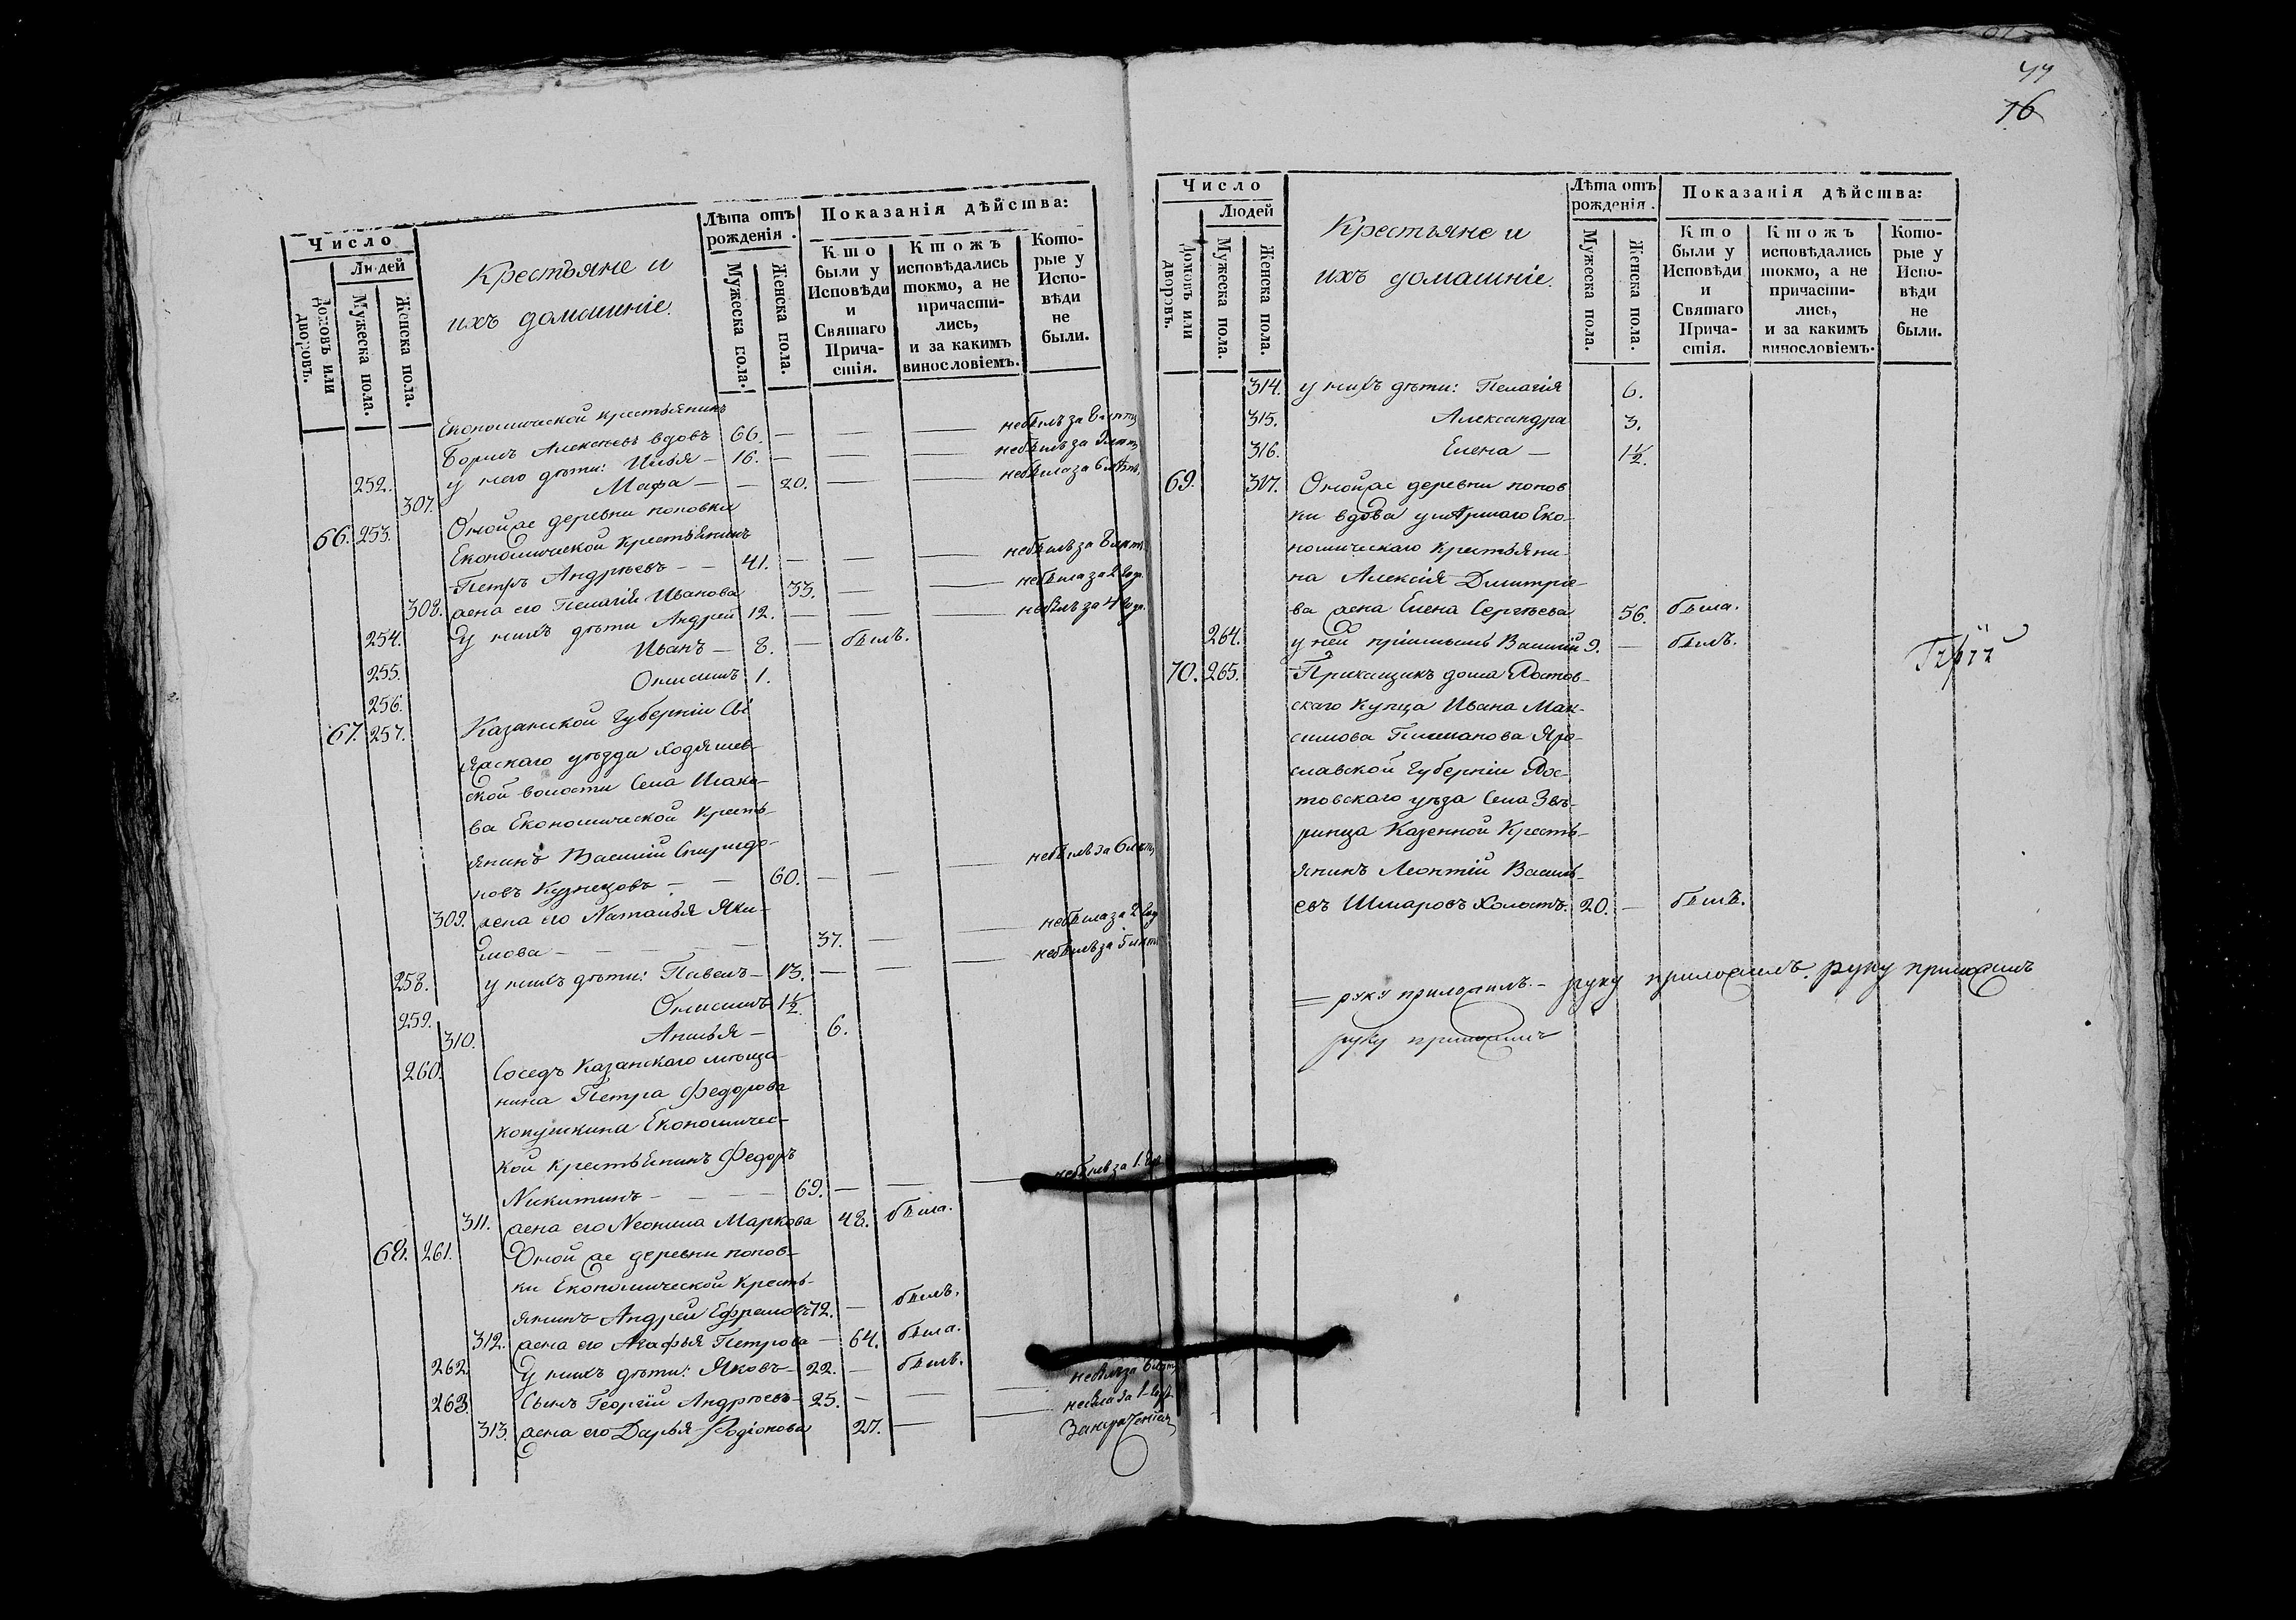 Число
Людей
Домовъ или дворовъ.
Мужеска пола.
Женска пола.
Крестьяне и
ихъ домашніе.
Лѣта отъ рожденія.
Мужеска пола.
Женска пола.
Показанія дѣйства:
Кто были у Исповѣди и Святаго Причастія.
Ктожъ исповѣдались токмо, а не причастились, и за какимъ винословіемъ.
Которые у Исповѣди не были.
Економической крестьянинъ
Борисъ Алексѣевъ вдовъ 66. — — — небылъ за 8 лѣтъ
252. у него дѣти: Илья — 16. — — — небылъ за
307. Марфа — — 20. — — небыла за 6 лѣтъ
66. 253. Оной же деревни поповки
Економической крестьянинъ
Петръ Андрѣевъ — — 41. — — — небылъ за 8 лѣтъ
308. жена его Пелагія Иванова 33. — — небыла за 2 год.
254. У нихъ дѣти Андрей 12. — — — небылъ за 4 год.
255. Иванъ — 8. — былъ.
256. Онисимъ 1.
67. 257. Казанской Губерніи Сві
яжскаго уѣзда Ходяшев-
ской волости Села Исако-
ва Економической Кресть-
янинъ Василій Спиридо-
новъ Кузнецовъ — — 60. — — — небылъ за 6 лѣтъ
309. жена его Наталья Яки-
мова — — — — 37. — — небыла за 2 год
258. у нихъ дѣти: Павелъ — 13. — — — небылъ за 5 лѣтъ
259. Онисимъ 1½.
310. Анисья — 6.
260. Соседъ Казанскаго мѣща-
нина Петра Федорова
кокушкина Економичес-
кой крестьянинъ Федоръ
Никитинъ — — — — 69. — — — небылъ за 1. год
311. жена его Неонила Маркова 48. была.
68. 261. Оной же деревни попов-
ки Економической Кресть-
янинъ Андрей Ефремовъ 72. — былъ.
312. жена его Агафья Петрова — 64. была.
262. У нихъ дѣти: Яковъ — 22. — былъ.
263. Сынъ Георгій Андрѣевъ — 25. — — — небылъ за 6 лѣтъ
313. жена его Дарья Родіонова 27. — — небыла за 1 годъ
44
76
Число
Людей
Домовъ или дворовъ.
Мужеска пола.
Женска пола.
Крестьяне и
ихъ домашніе.
Лѣта отъ рожденія.
Мужеска пола.
Женска пола.
Показанія дѣйства:
Кто были у Исповѣди и Святаго Причастія.
Ктожъ исповѣдались токмо, а не причастились, и за какимъ винословіемъ.
Которые у Исповѣди не были.
314. у нихъ дѣти: Пелагія 6.
315. Александра 3.
316. Елена — 1½.
69. 317. Оной же деревни попов
ки вдова умершаго Еко-
номическаго крестьяни-
на Алексія Димитріе-
ва жена Елена Сергѣева 56. была.
264. у ней пріимышъ Василій 9. — былъ.
70. 265. Прикащикъ дома Ростов-
скаго Купца Ивана Мак-
симова Яро-
славской Губерніи Рос-
товскаго уѣза Села Звѣ-
ринца Казенной Кресть-
янинъ Леонтій Василь-
евъ Шмаровъ Холостъ. 20. — былъ.
= руку приложилъ. — руку приложилъ. руку приложилъ
руку приложилъ